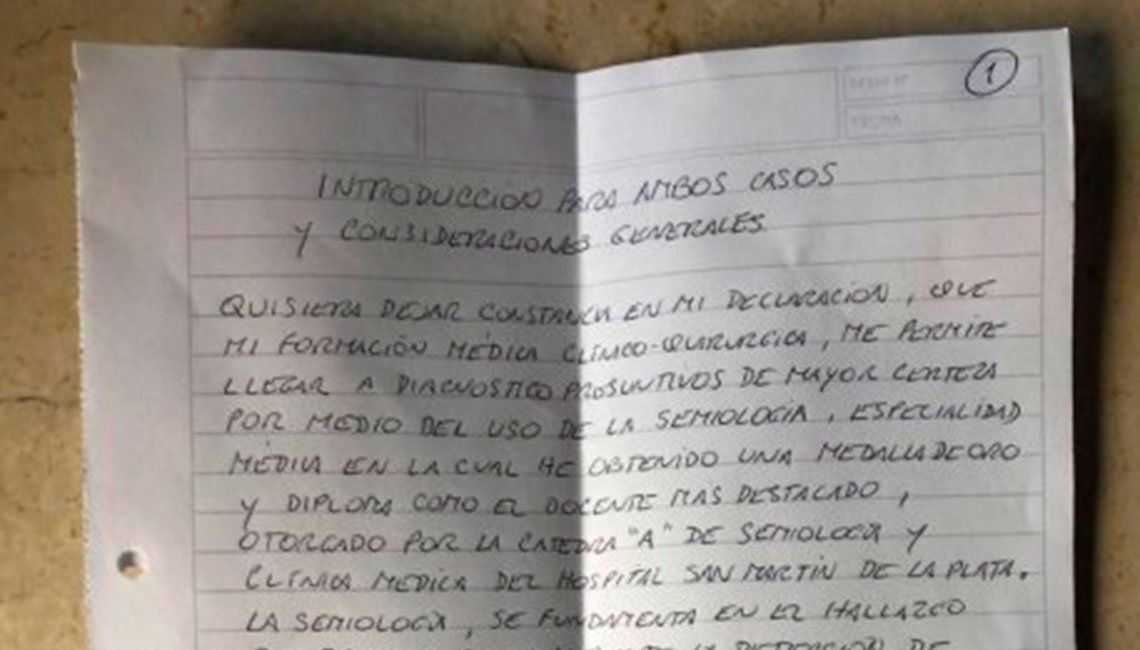 1
TEMA Nº
FECHA
INTRODUCCION PARA AMBOS CASOS
Y CONSIDERACIONES GENERALES
QUISIERA DEJAR CONSTANCIA EN MI DECLARACION, QUE
MI FORMACIÓN MÉDICA CLINICO-QUIRURGICA, ME PERMITE
LLEGAR A DIAGNOSTICO PRESUNTIVOS DE MAYOR CERTEZA
POR MEDIO DEL USO DE LA SEMIOLOGIA, ESPECIALIDAD
MÉDICA EN LA CUAL HE OBTENIDO UNA MEDALLA DE ORO
Y DIPLOMA COMO EL DOCENTE MAS DESTACADO,
OTORGADO POR LA CATEDRA "A" DE SEMIOLOGIA Y
CLÍNICA MEDICA DEL HOSPITAL SAN MARTÍN DE LA PLATA.
LA SEMIOLOGIA, SE FUNDAMENTA EN EL HALLAZGO
DE LA DETECCION DE